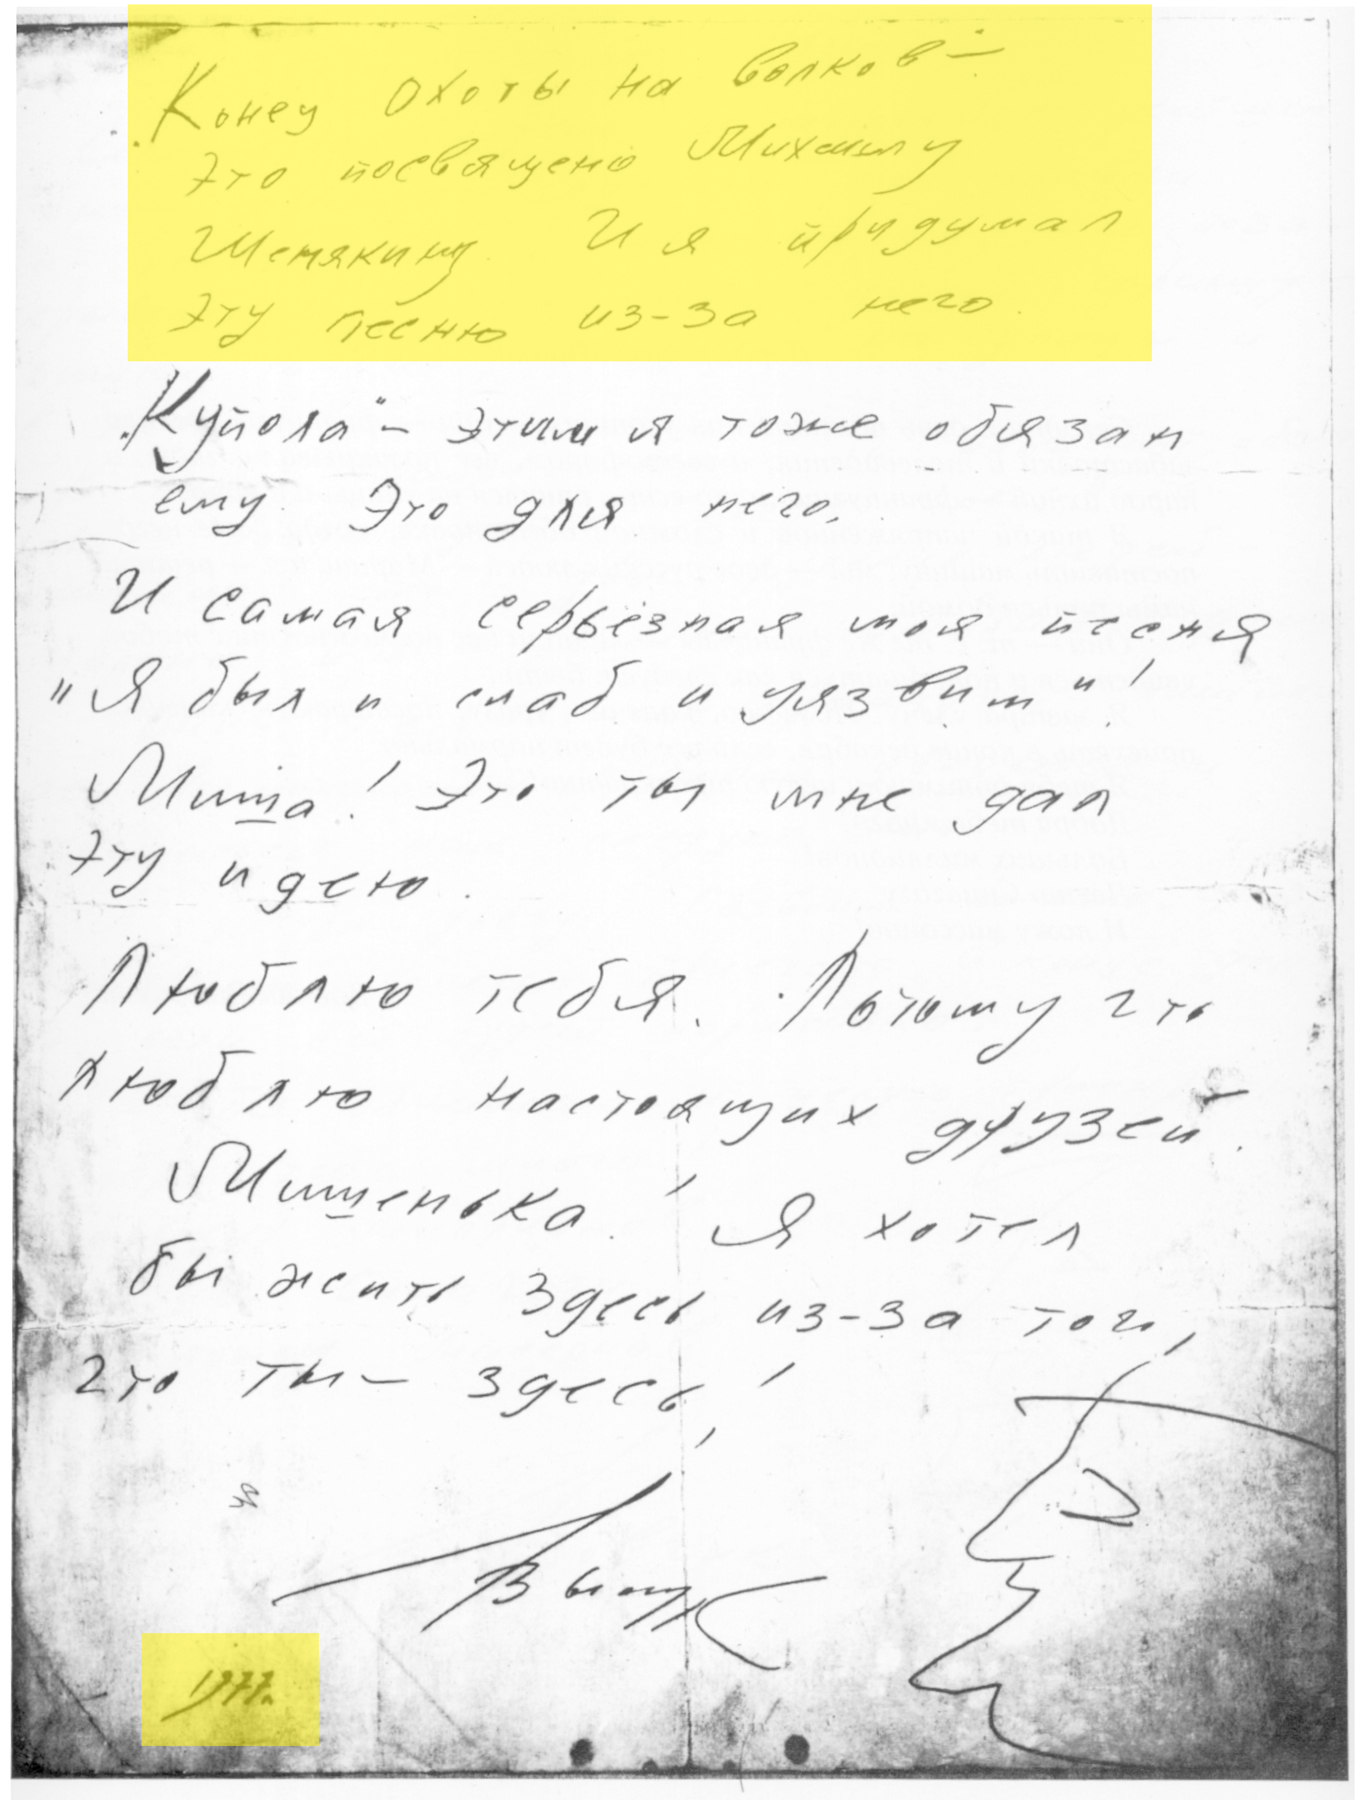 Конец Охоты на волков" —
Это посвящено Михаилу
Шемякину. И я придумал
Эту песню из-за него.
„Купола" – этим я тоже обязан
ему. Это для него.
И самая серьезная моя песня
"Я был и слаб и уязвим"!
Миша! Это ты мне дал
Эту идею.
Люблю тебя. Потому что
люблю настоящих друзей.
Мишенька! Я хотел
бы жить здесь из-за того,
что ты – здесь!
1977.